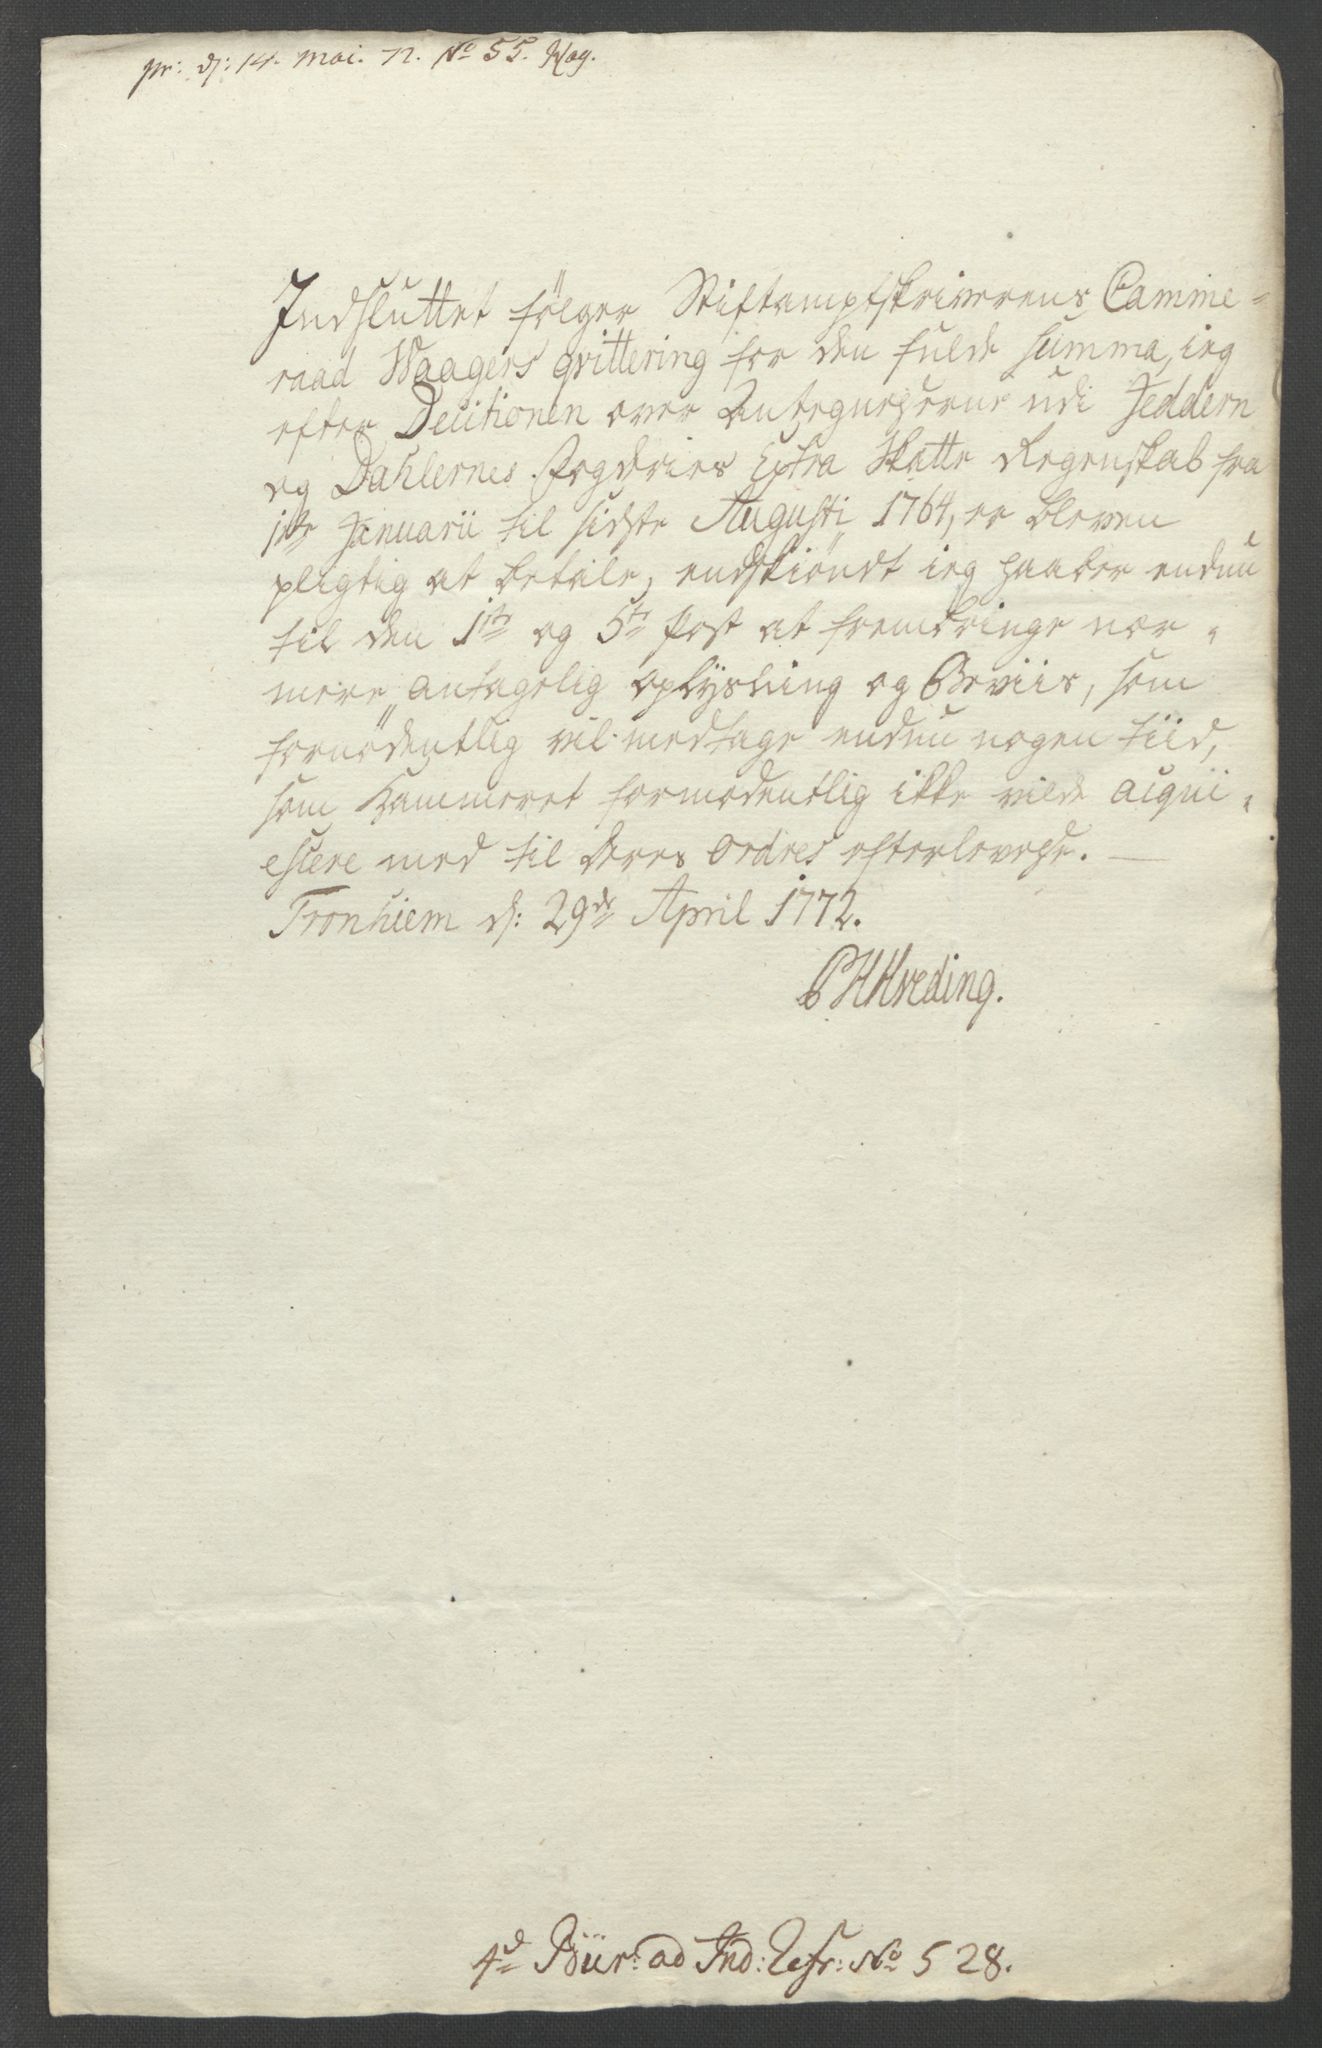 pr: d: 14. Mai. 72. No 55. Aag.
Indsluttet følger Stiftamptskriverens Camme-
raad Waagers qvittering for den fulde summa, ieg
efter Decitionen over Antegnelserne udi Jeddern
og Dahlernes Fogderies Extra Skatte Regenskab fra
1ste Januarii til sidste Augusti 1764, er bleven
pligtig at betale, endskiøndt ieg haaber endnu
til den 1ste og 5te Post at frembringe nær-
mere antagelig oplysning og Beviis, som
fornødentlig vil medtage endnu nogen tiid,
som Kammeret formodentlig ikke vilde acqui-
escere med til deres ordres efterlevelse. —
Tronhiem d: 29de April 1772.
P H Hveding.
4de Büur: ad Ind: No 528.